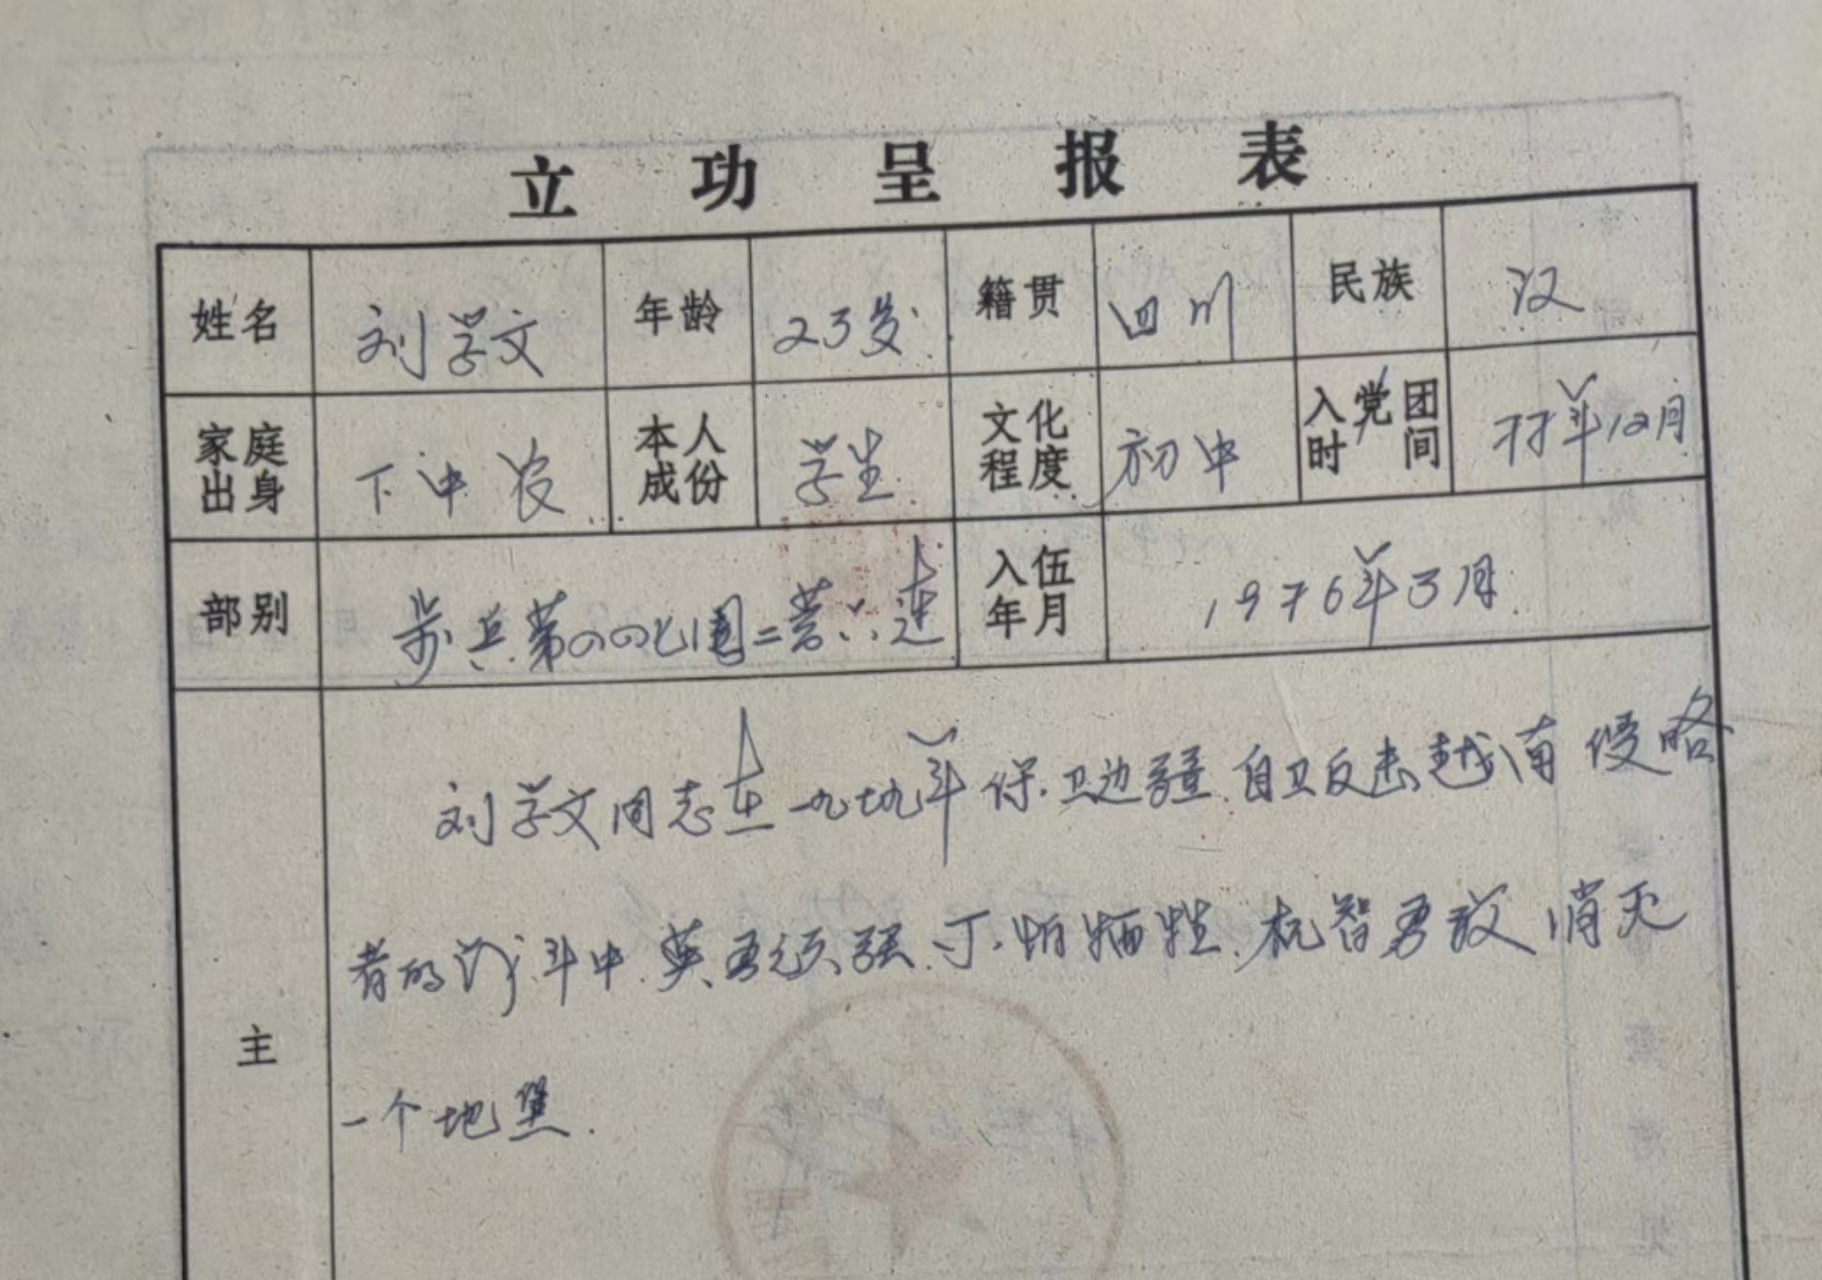 立功呈报表
姓名 刘学文 年龄 23岁 籍贯 四川 民族 汉
家庭出身 下中农 本人成份 学生 文化程度 初中 入党团时间 77年12月
部别 步兵第四四七团二营六连 入伍年月 1976年3月
刘学文同志在一九七九年保卫边疆自卫反击越南侵略
者的战斗中.英勇顽强.不怕牺牲.机智勇敢消灭
主
一个地堡.